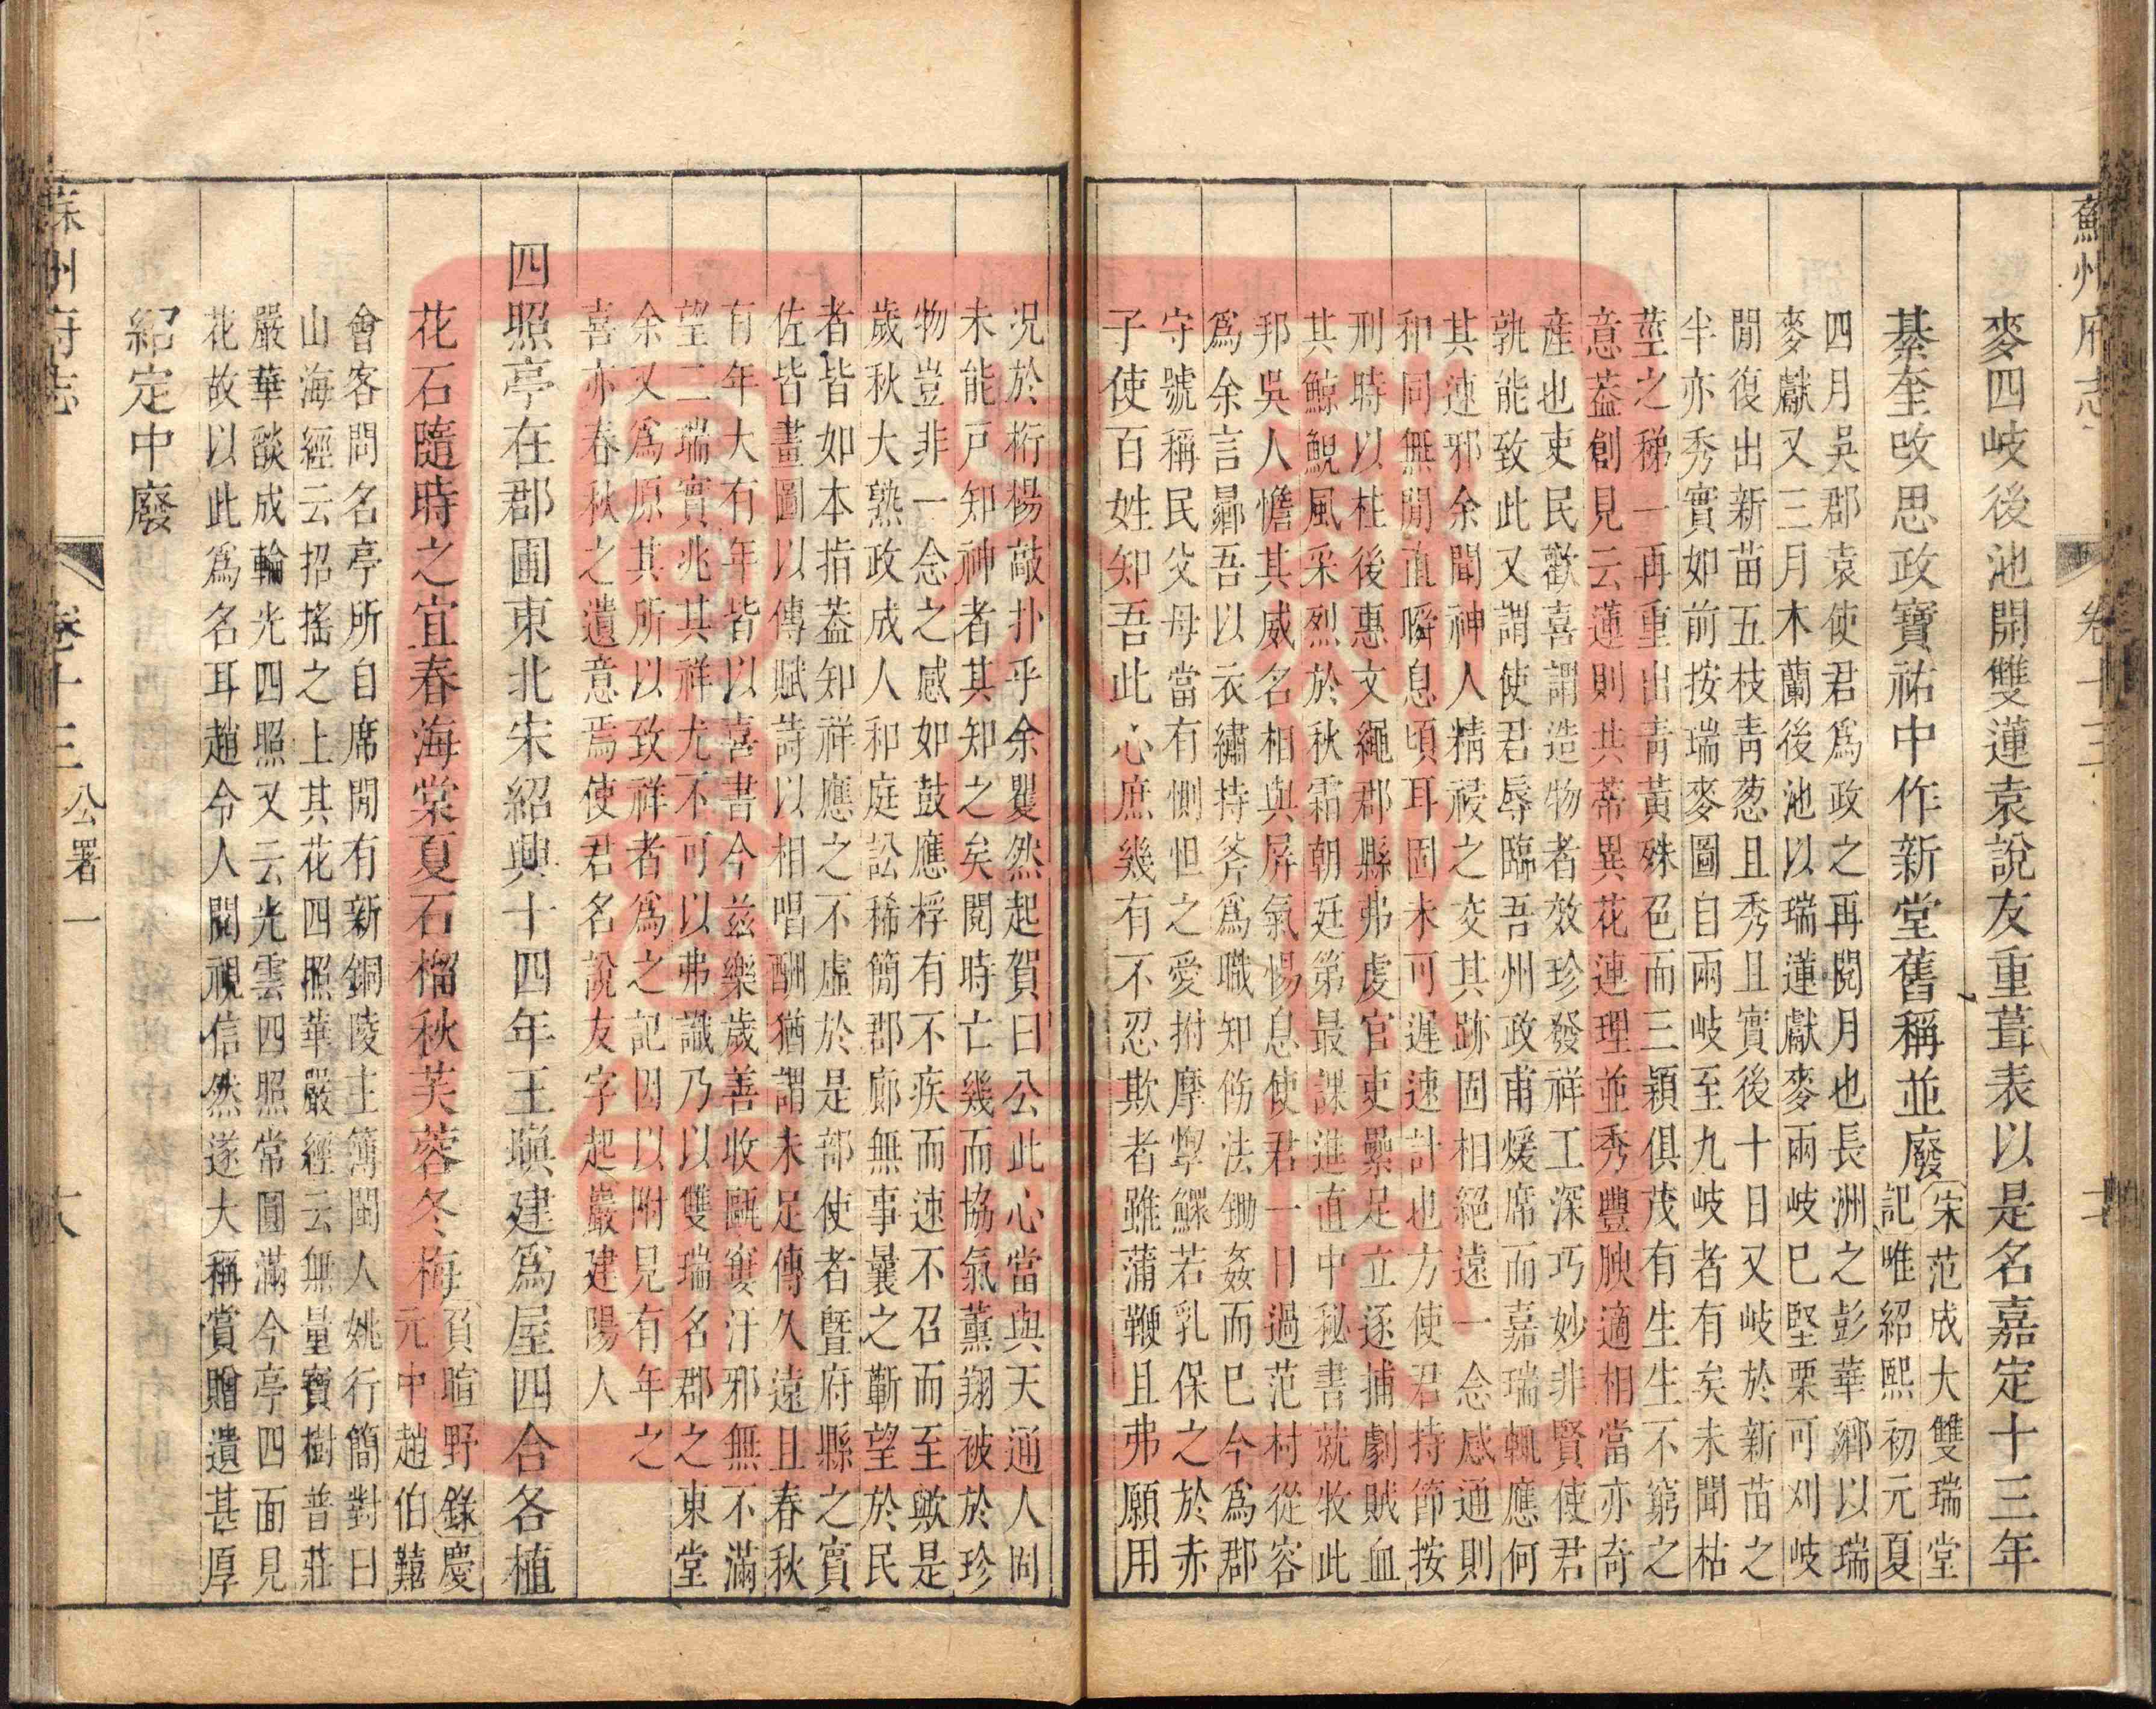 蘇州府志
卷十三
麥四岐後池開雙蓮袁說友重葺表以是名嘉定十三年
綦奎改思政寶祐中作新堂舊稱並廢
宋范成大雙瑞堂
記唯紹熙初元夏
四月吳郡袁使君為政之再閱月也長洲之彭華鄉以瑞
麥獻又三月木蘭後池以瑞蓮獻麥兩岐巳堅栗可刈岐
閒復出新苗五枝靑葱且秀且實後十日又岐於新苗之
半亦秀實如前按瑞麥圖自兩岐至九岐者有矣未聞枯
莖之稊一再重出靑黃殊色而三穎俱茂有生生不窮之
意葢創見云蓮則共蒂異花連理並秀豐腴適相當亦奇
產也吏民歡喜謂造物者效珍發祥工深巧妙非賢使君
孰能致此又謂使君辱臨吾州政甫煖席而嘉瑞輒應何
其速邪余聞神人精祲之交其跡固相絕遠一念感通則
和同無閒直瞬息頃耳固未可遲速計也方使君持節按
刑時以柱後惠文繩郡縣弗虔官吏纍足立逐捕劇賊血
其鯨鯢風采烈於秋霜朝廷第最課進直中秘書就牧此
邦吳人憺其威名相與屏氣惕息使君一日過范村從容
為余言曏吾以衣繡持斧為職知飭法鋤姦而巳今為郡
守號稱民父母當有惻怛之愛拊摩㓗鰥若乳保之於赤
子使百姓知吾此心庶幾有不忍欺者雖蒲鞭且弗願用
況於桁楊敲扑乎余矍然起賀曰公此心當與天通人固
未能戸知神者其知之矣閱時亡幾而協氣薰翔被於珍
物豈非一念之感如鼓應桴有不疾而速不召而至歟是
歲秋大熟政成人和庭訟稀簡郡廊無事曩之蘄望於民
者皆如本指葢知祥應之不虛於是部使者暨府縣之賓
佐皆畫圖以傳賦詩以相唱酬猶謂未足傳久遠且春秋
有年大有年皆以喜書今茲樂歲善收甌窶汙邪無不滿
望二瑞實兆其祥尤不可以弗識乃以雙瑞名郡之東堂
余又為原其所以致祥者為之記因以附見有年之
喜亦春秋之遺意焉使君名說友字起巖建陽人
四照亭在郡圃東北宋紹興十四年王㬇建為屋四合各植
花石隨時之宜春海棠夏石榴秋芙蓉冬梅
負暄野錄慶
元中趙伯囏
會客問名亭所自席閒有新銅陵主簿閩人姚行簡對曰
山海經云招搖之上其花四照華嚴經云無量寶樹普莊
嚴華燄成輪光四照又云光雲四照常圓滿今亭四面見
花故以此為名耳趙令人閱視信然遂大稱賞贈遺甚厚
紹定中廢
蘇州府志
卷十三
公署一